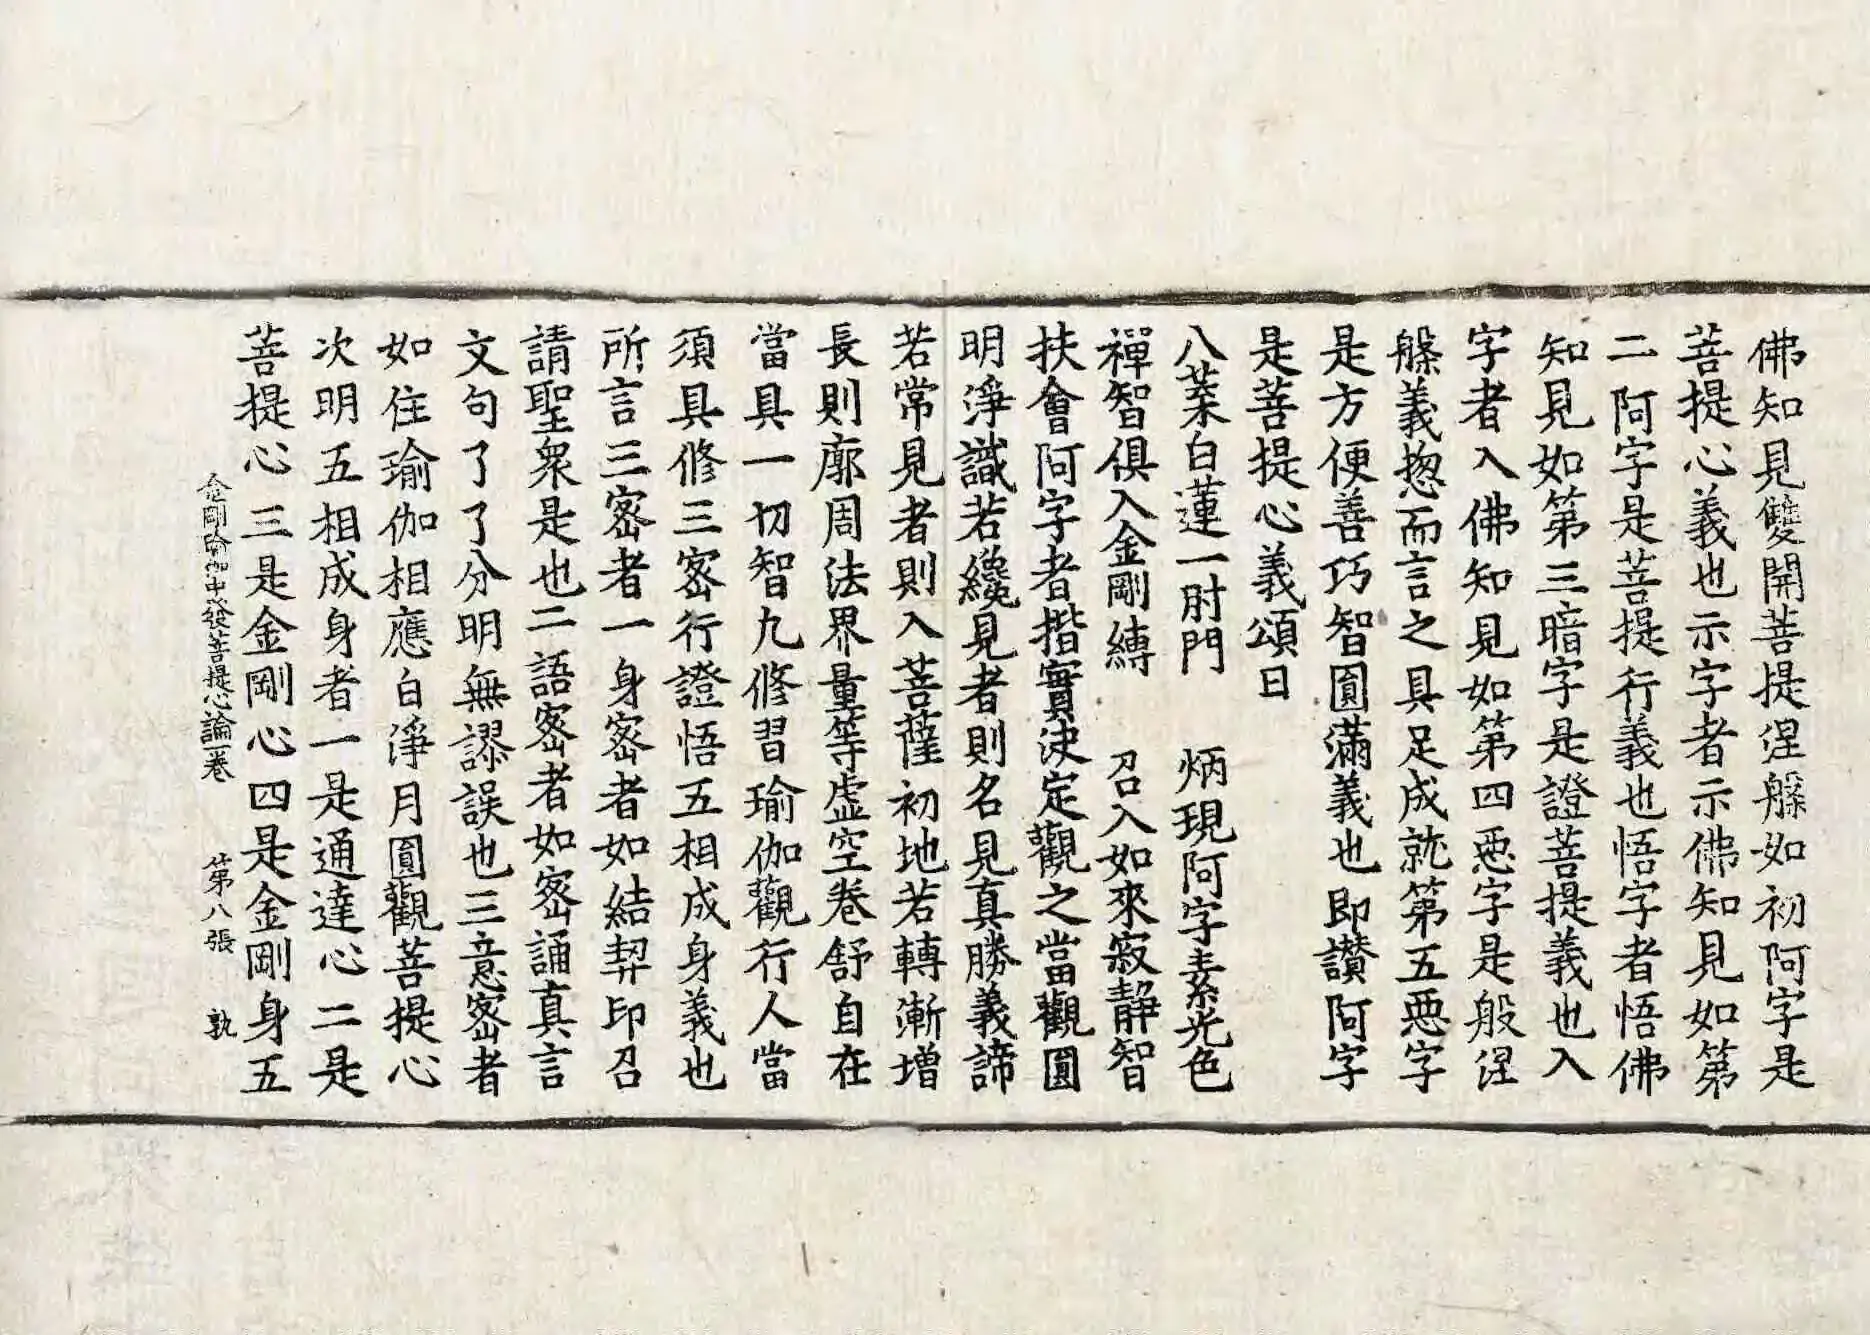 佛知見雙開菩提涅槃如初阿字是
菩提心義也示字者示佛知見如第
二阿字是菩提行義也悟字者悟佛
知見如第三暗字是證菩提義也入
字者入佛知見如第四惡字是般涅
槃義揔而言之具足成就第五惡字
是方便善巧智圓滿義也即讃阿字
是菩提心義頌曰
八葉白蓮一肘門　炳現阿字素光色
禪智俱入金剛縛　召入如來寂靜智
扶會阿字者揩實決定觀之當觀圓
明淨識若纔見者則名見真勝義諦
若常見者則入菩薩初地若轉漸增
長則廓周法界量等虛空卷舒自在
當具一切智九修習瑜伽觀行人當
須具修三密行證悟五相成身義也
所言三密者一身密者如結契印召
請聖眾是也二語密者如密誦真言
文句了了分明無謬誤也三意密者
如住瑜伽相應白淨月圓觀菩提心
次明五相成身者一是通達心二是
菩提心三是金剛心四是金剛身五
金剛瑜伽中發菩提心論一卷　第八張　敦